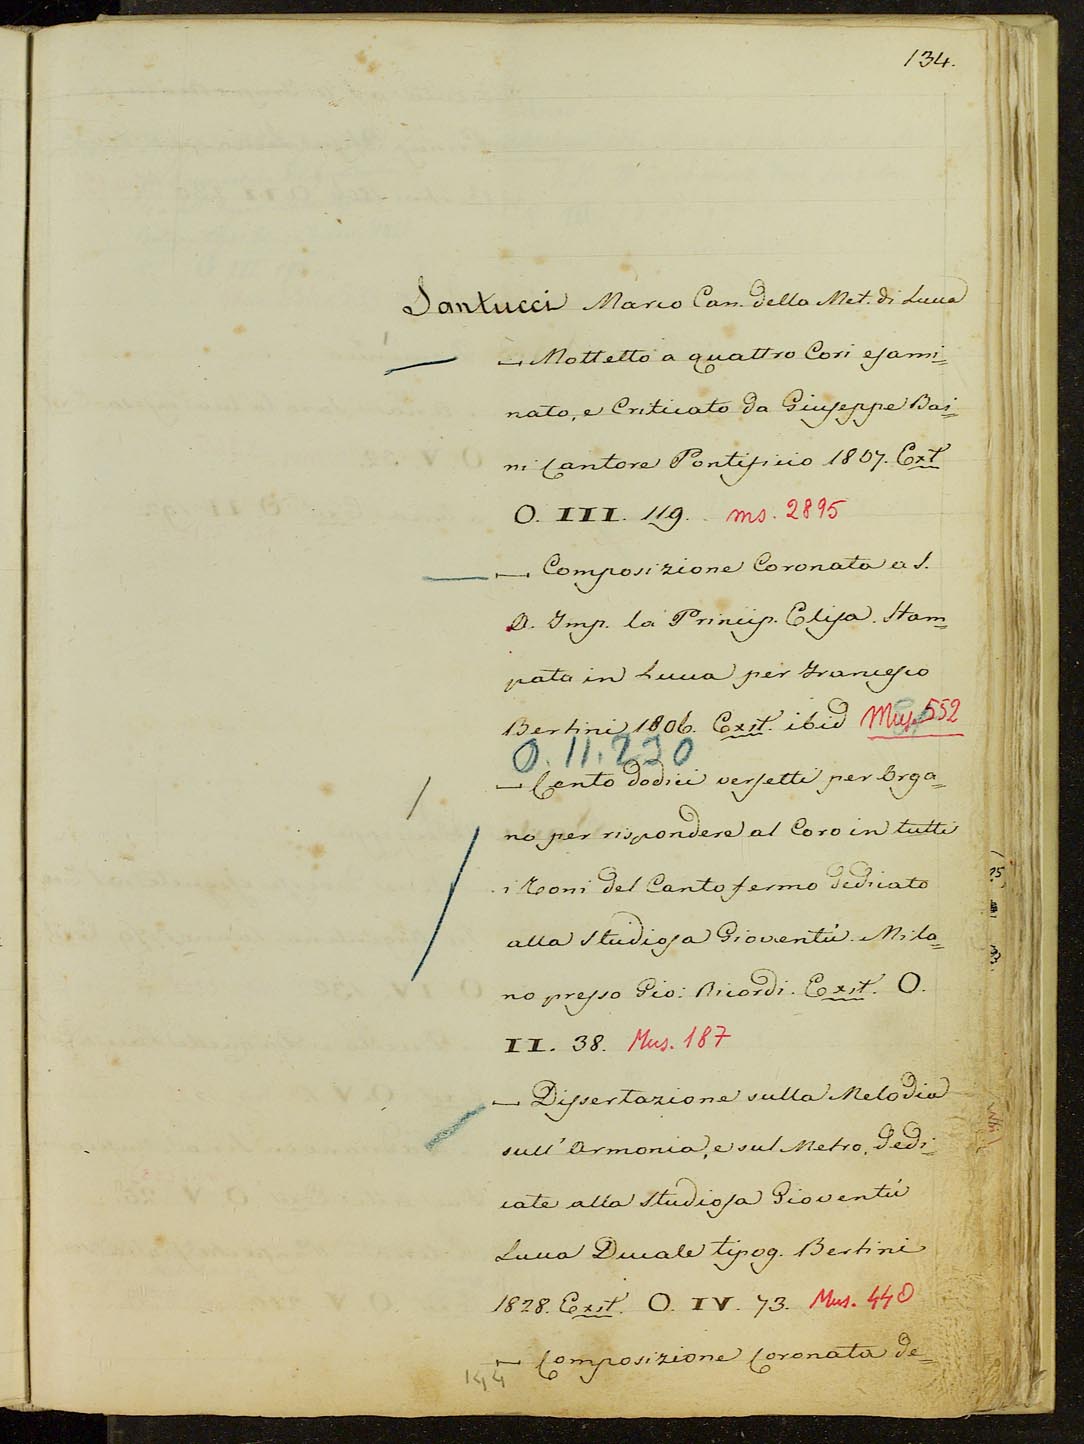 134.
Santucci Marco Can. della Met. di Lucca
— Mottetto a quattro Cori esami=
nato, e Criticato da Giuseppe Bai=
ni Cantore Pontificio 1807. Ext
O. III. 119. ms. 2895
— Composizione Coronata a S.
A. Imp. la Princip. Elisa. Stam=
pata in Lucca per Francesco
Bertini 1806. Exit. ibid Mus. 552
O. II. 220
— Cento dodici versetti per Orga=
no per rispondere al Coro in tutti
i toni del Canto fermo dedicato
alla studiosa Gioventù. Mila=
no presso Gio: Ricordi. Exit. O.
II. 38. Mus. 187
— Dissertazione sulla Melodia
sull' Armonia, e sul Metro, dedi=
cate alla studiosa Gioventù
Lucca Ducale tipog. Bertini
1828. Exit. O. IV. 73. Mus. 440
— Composizione Coronata de=
144